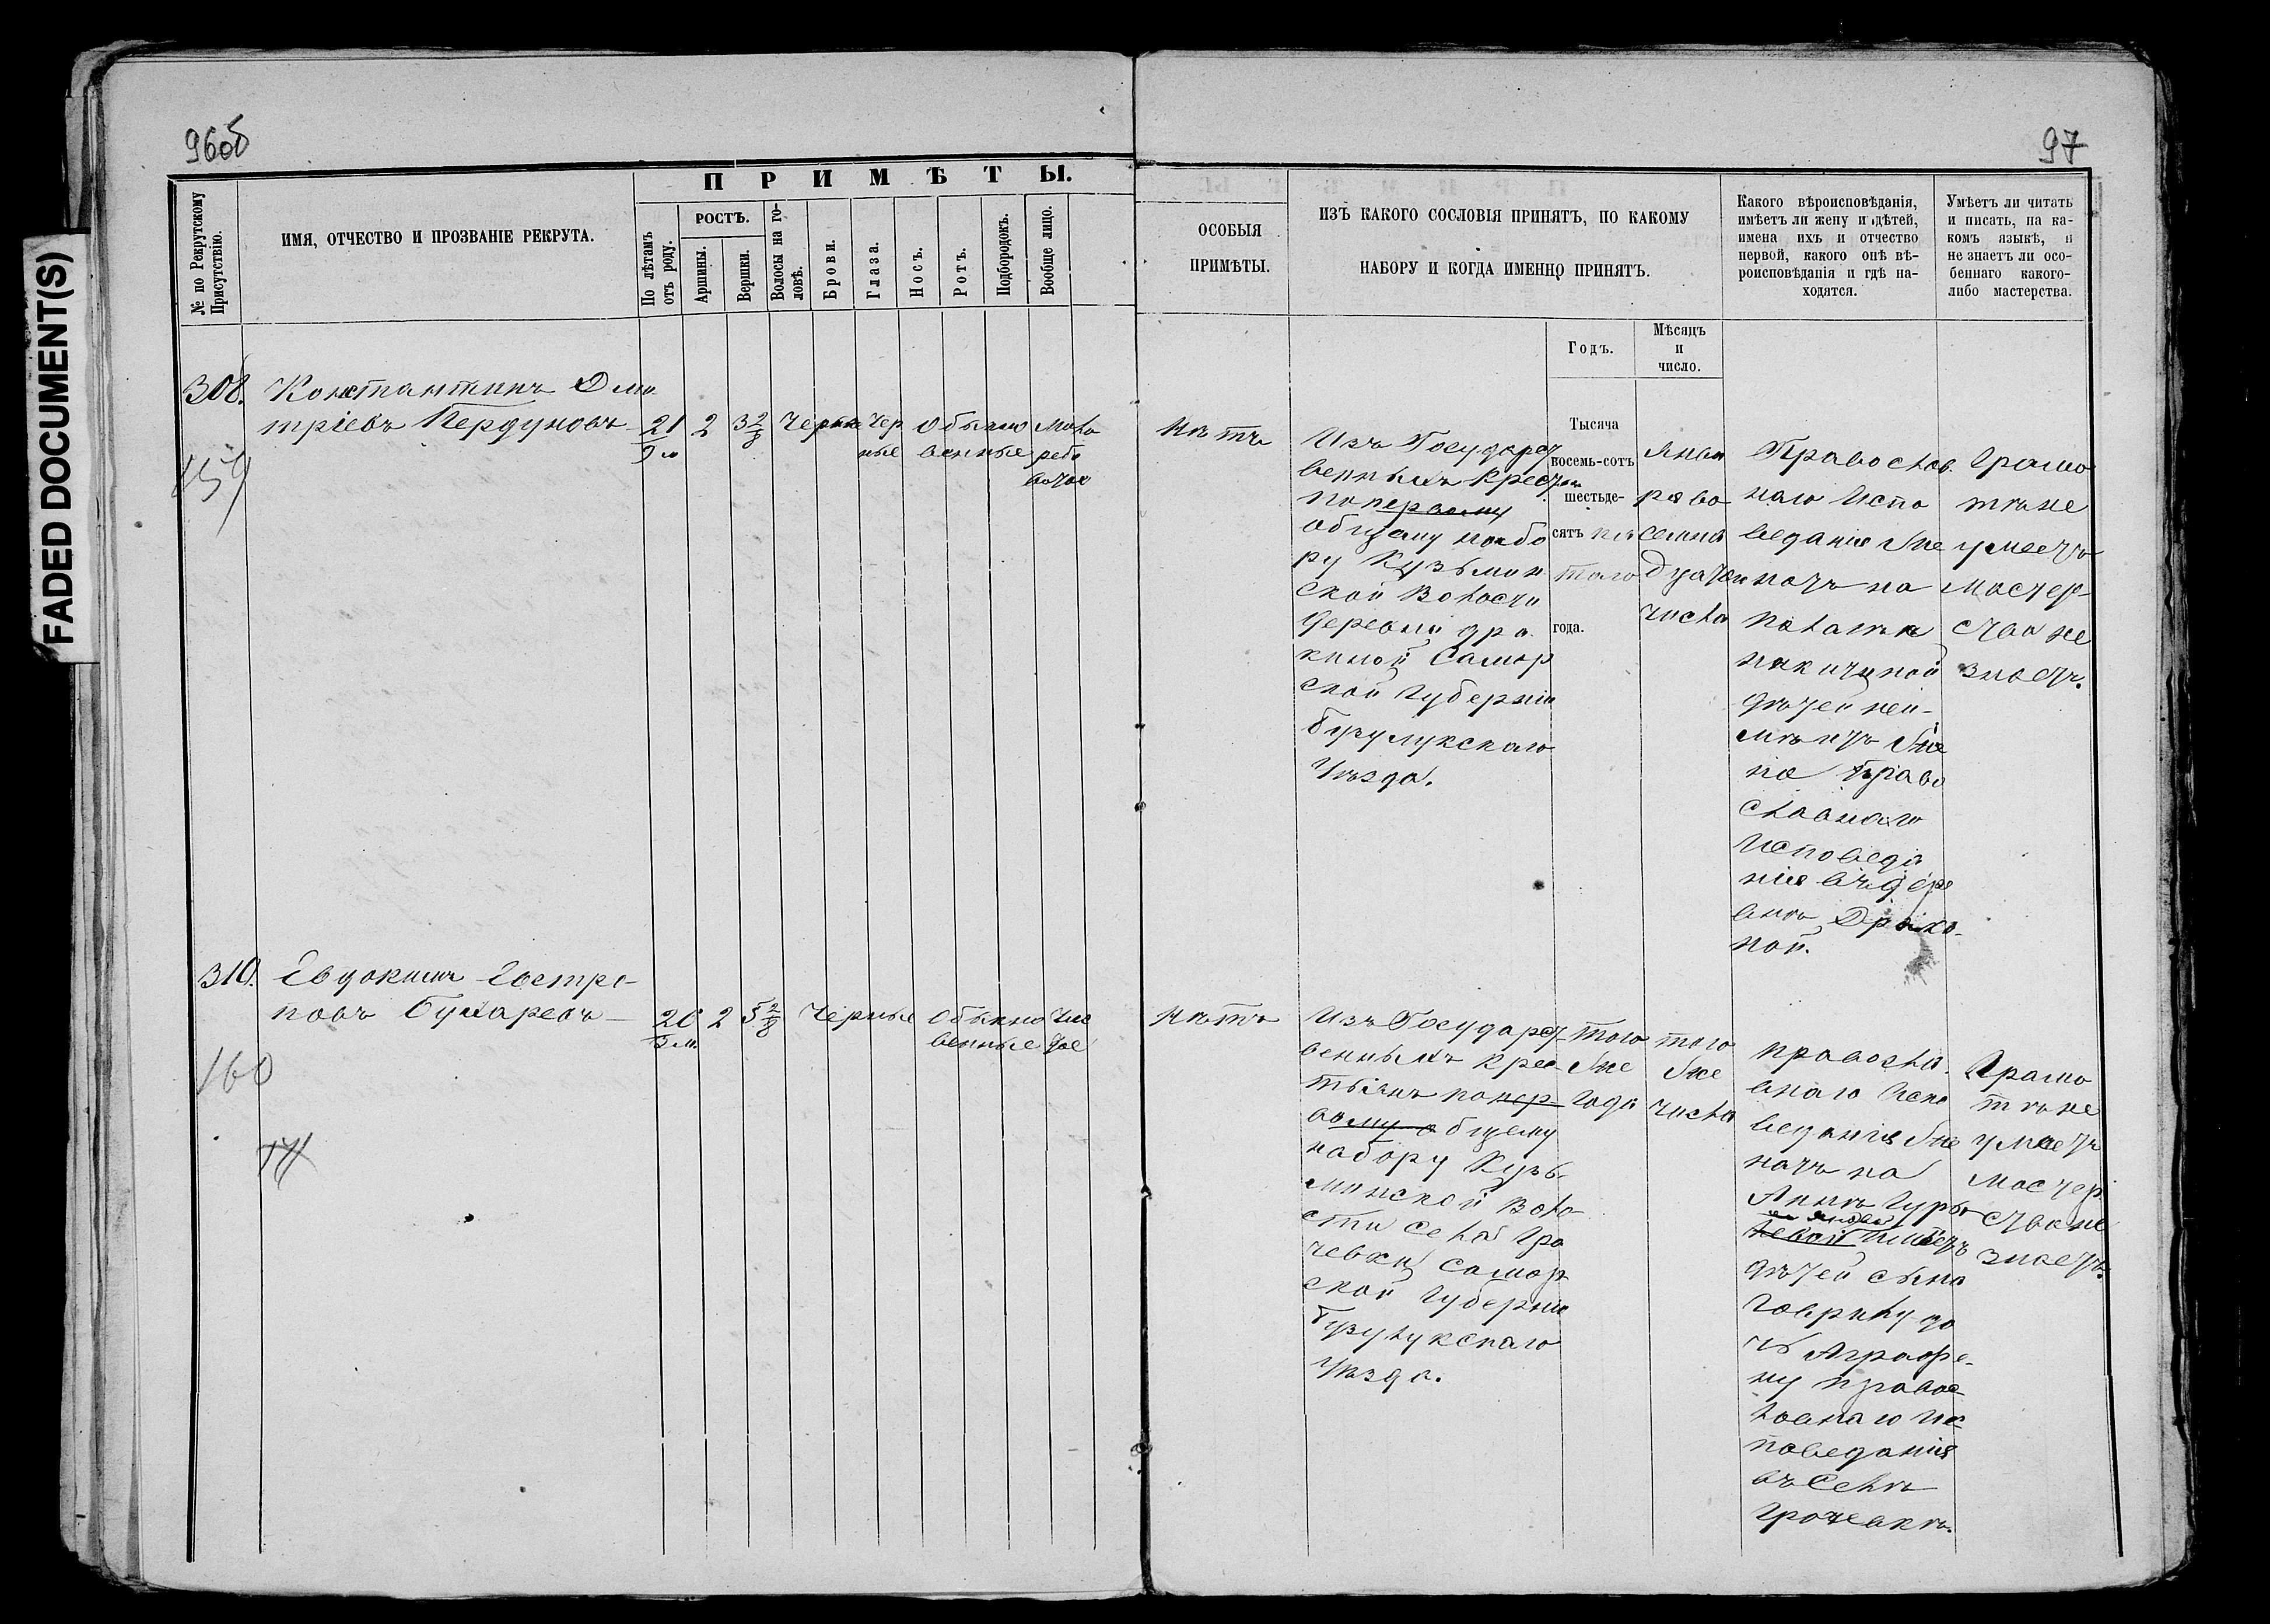 FADED DOCUMENT(S)
96об
97
П Р И М Ѣ Т Ы.
№ по Рекрутскому
Присутствію.
ИМЯ, ОТЧЕСТВО И ПРОЗВАНІЕ РЕКРУТА.
По лѣтамъ
отъ роду.
РОСТЪ.
Аршины.
Вершки.
Волосы на го-
ловѣ.
Брови.
Глаза.
Носъ.
Ротъ.
Подбородокъ.
Вообще лицо.
ОСОБЫЯ
ПРИМѢТЫ.
ИЗЪ КАКОГО СОСЛОВІЯ ПРИНЯТЪ, ПО КАКОМУ
НАБОРУ И КОГДА ИМЕННО ПРИНЯТЪ.
Годъ.
Мѣсяцъ
и
число.
Какого вѣроисповѣданія,
имѣетъ ли жену и дѣтей,
имена ихъ и отчество
первой, какого онѣ вѣ-
роисповѣданія и гдѣ на-
ходятся.
Умѣетъ ли читать
и писать, на ка-
комъ языкѣ, и
не знаетъ ли осо-
беннаго какого-
либо мастерства.
308.
Константинъ Дми
тріевъ Пердуновъ
159
21
9 м
2
3 2/8
Черные
Чер
ные
Обыкно
венные
Мало
ребо
ватое
Нѣтъ
Изъ Государст
венныхъ Крест
по первому
общему набо
ру Кузьмин
ской Волости
деревни Дра
киной Самар
ской Губерніи
Бузулукскаго
Уѣзда.
Тысяча
восемь-сотъ
шестьде-
сятъ пя
таго
года.
Янва
ря во
семна
дцатаго
числа
Православ
наго Испо
веданія же
натъ на
Никитиной
дѣтей неи-
мѣетъ же
на Право
славнаго
Исповеда
нія въ дере
внѣ Драки
ной.
Грамо
тѣ не
умеетъ
мастер
ства не
знаетъ.
310.
Евдокимъ Евстра
повъ Бухаревъ
160
2
5 2/8
Черные
Обыкно
венные
Чис
тое
Нѣтъ
Изъ Государст
венныхъ Крес
тьянъ по пер
вому общему
набору Кузь
минской Воло
сти Села Гра
чевки Самар
ской Губерніи
Бузулукскаго
Уѣзда.
того
же
Года
того
же
числа
Правосла
внаго Испо
веданія же
натъ на
Аннѣ Гурь
имѣетъ
дѣтей сына
Гаврилу до
чь Аграфе-
ну Правос-
лавнаго Ис
поведанія
въ Селѣ
Грачевкѣ.
Грамо
тѣ не
умеетъ
мастер
ства не
знаетъ.